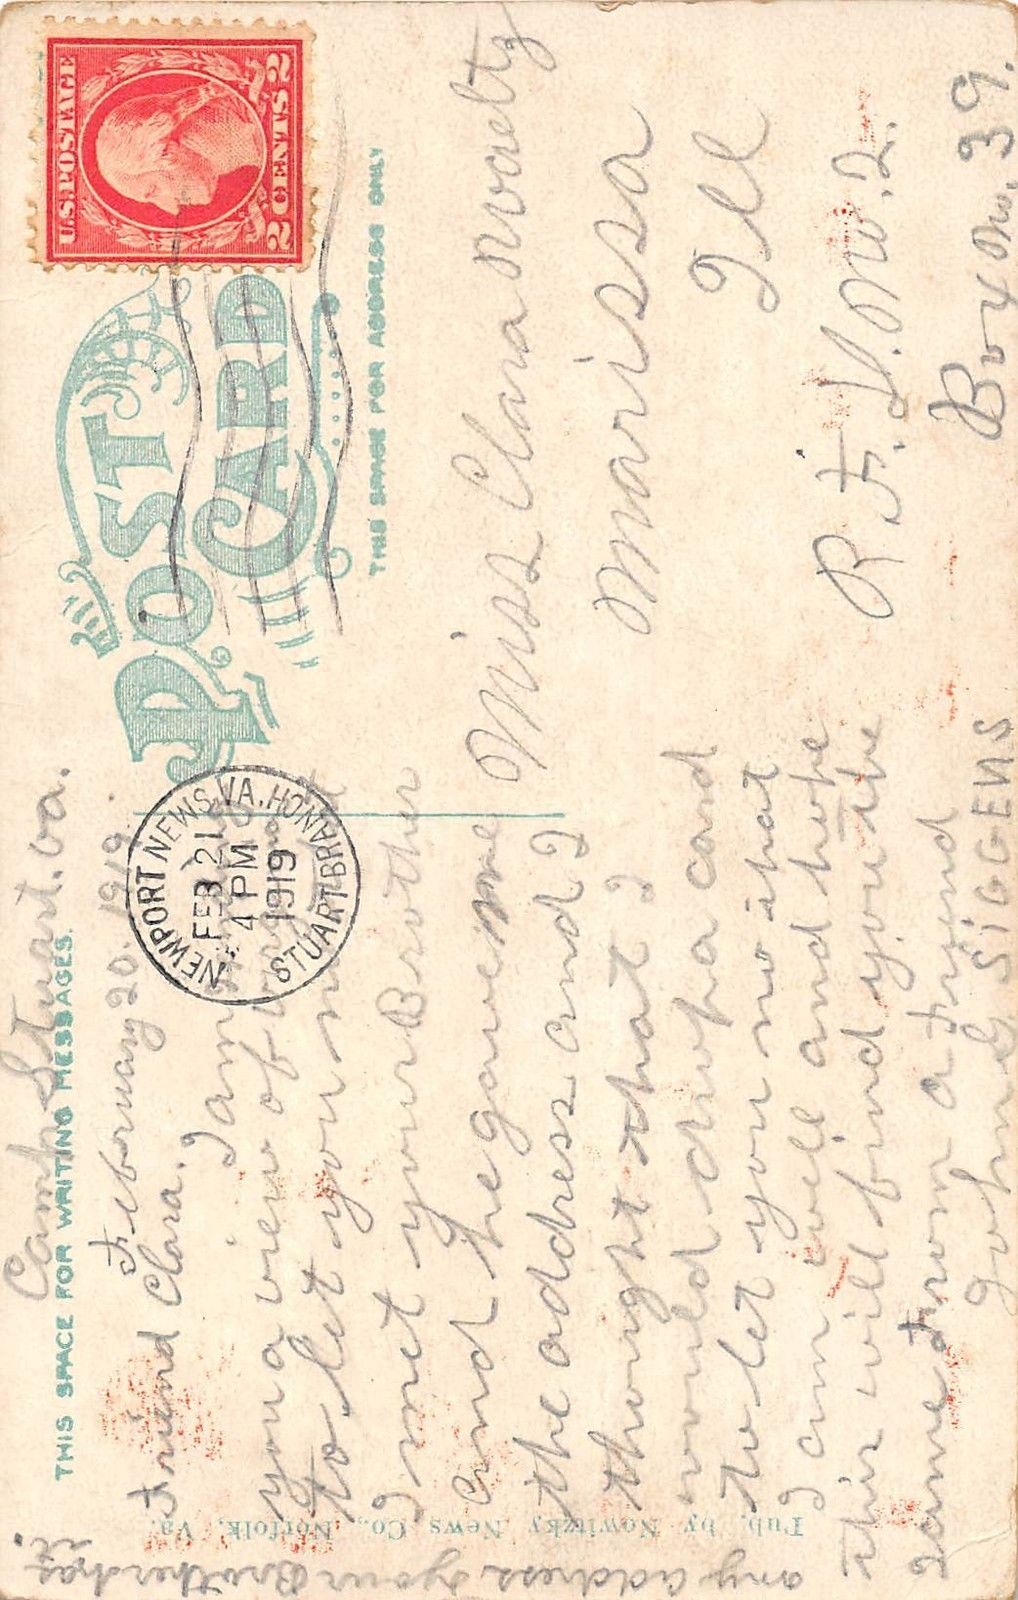 THIS SPACE FOR WRITING MESSAGES.
POST CARD
THIS SPACE FOR ADDRESS ONLY
U.S. POSTAGE
2 CENTS 2
NEWPORT NEWS, VA. HON. BRANCH
FEB 21
4 PM
1919
STUART BRANCH
Camp Stuart. Va.
February 20. 1919.
Friend Clara.
I am
you a view of
to let you
I met your Brother
and he gave me
the address and I
thought that I
would drop a card
to let you no that
I am well and hope
this will find you the
same From a Friend
John G SiGGENS
any address your Brother has
it.
Miss Clara
Marissa
Ill
R. F. D. No. 2.
Box No. 39.
Pub. by Nowitzky News Co., Norfolk, Va.